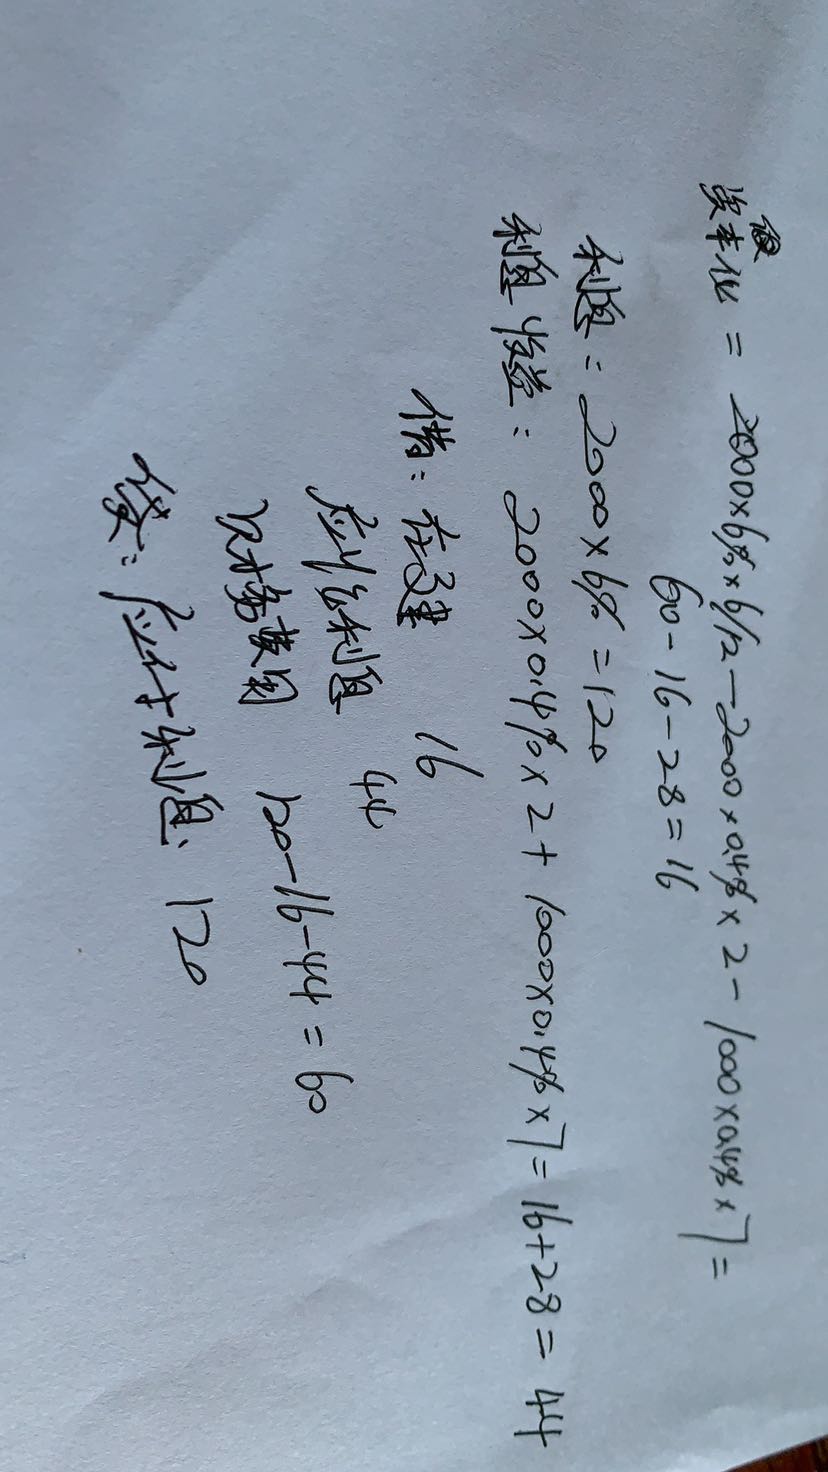 段
资本化 = 2000×6%×6/12-2000×0.4%×2-1000×0.4%×7=
60-16-28=16
利息:2000×6%=120
利息收益:2000×0.4%×2+1000×0.4%×7=16+28=44
借:在建 16
应收利息 44
财务费用 120-16-44=60
贷:应付利息 120